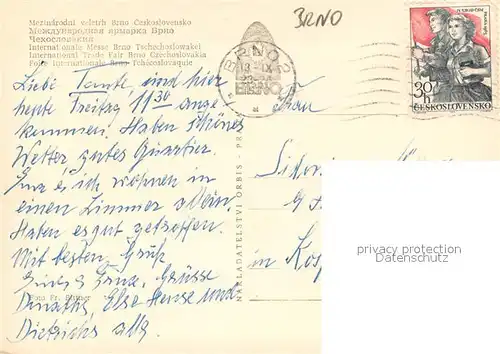 Mezinárodní veletrh Brno Československo
Международная ярмарка Брно
Чехословакия
Internationale Messe Brno Tschechoslowakei
International Trade Fair Brno Czechoslovakia
Foire Internationale Brno Tchécoslovaquie
BRNO
BRNO 2
BRNO
30 h
ČESKOSLOVENSKO
Liebe Tante, sind hier
heute Freitag 11 30 ange
kommen. Haben schönes
Wetter gutes Quartier.
ich wohnen in
einen Zimmer allein.
Haben es gut getroffen.
Mit besten Gruß
Grüsse
Else Hense und
Dietrichs
Frau
in
NAKLADATELSTVÍ ORBIS - PR
Foto Fr. Bittner
privacy protection
Datenschutz